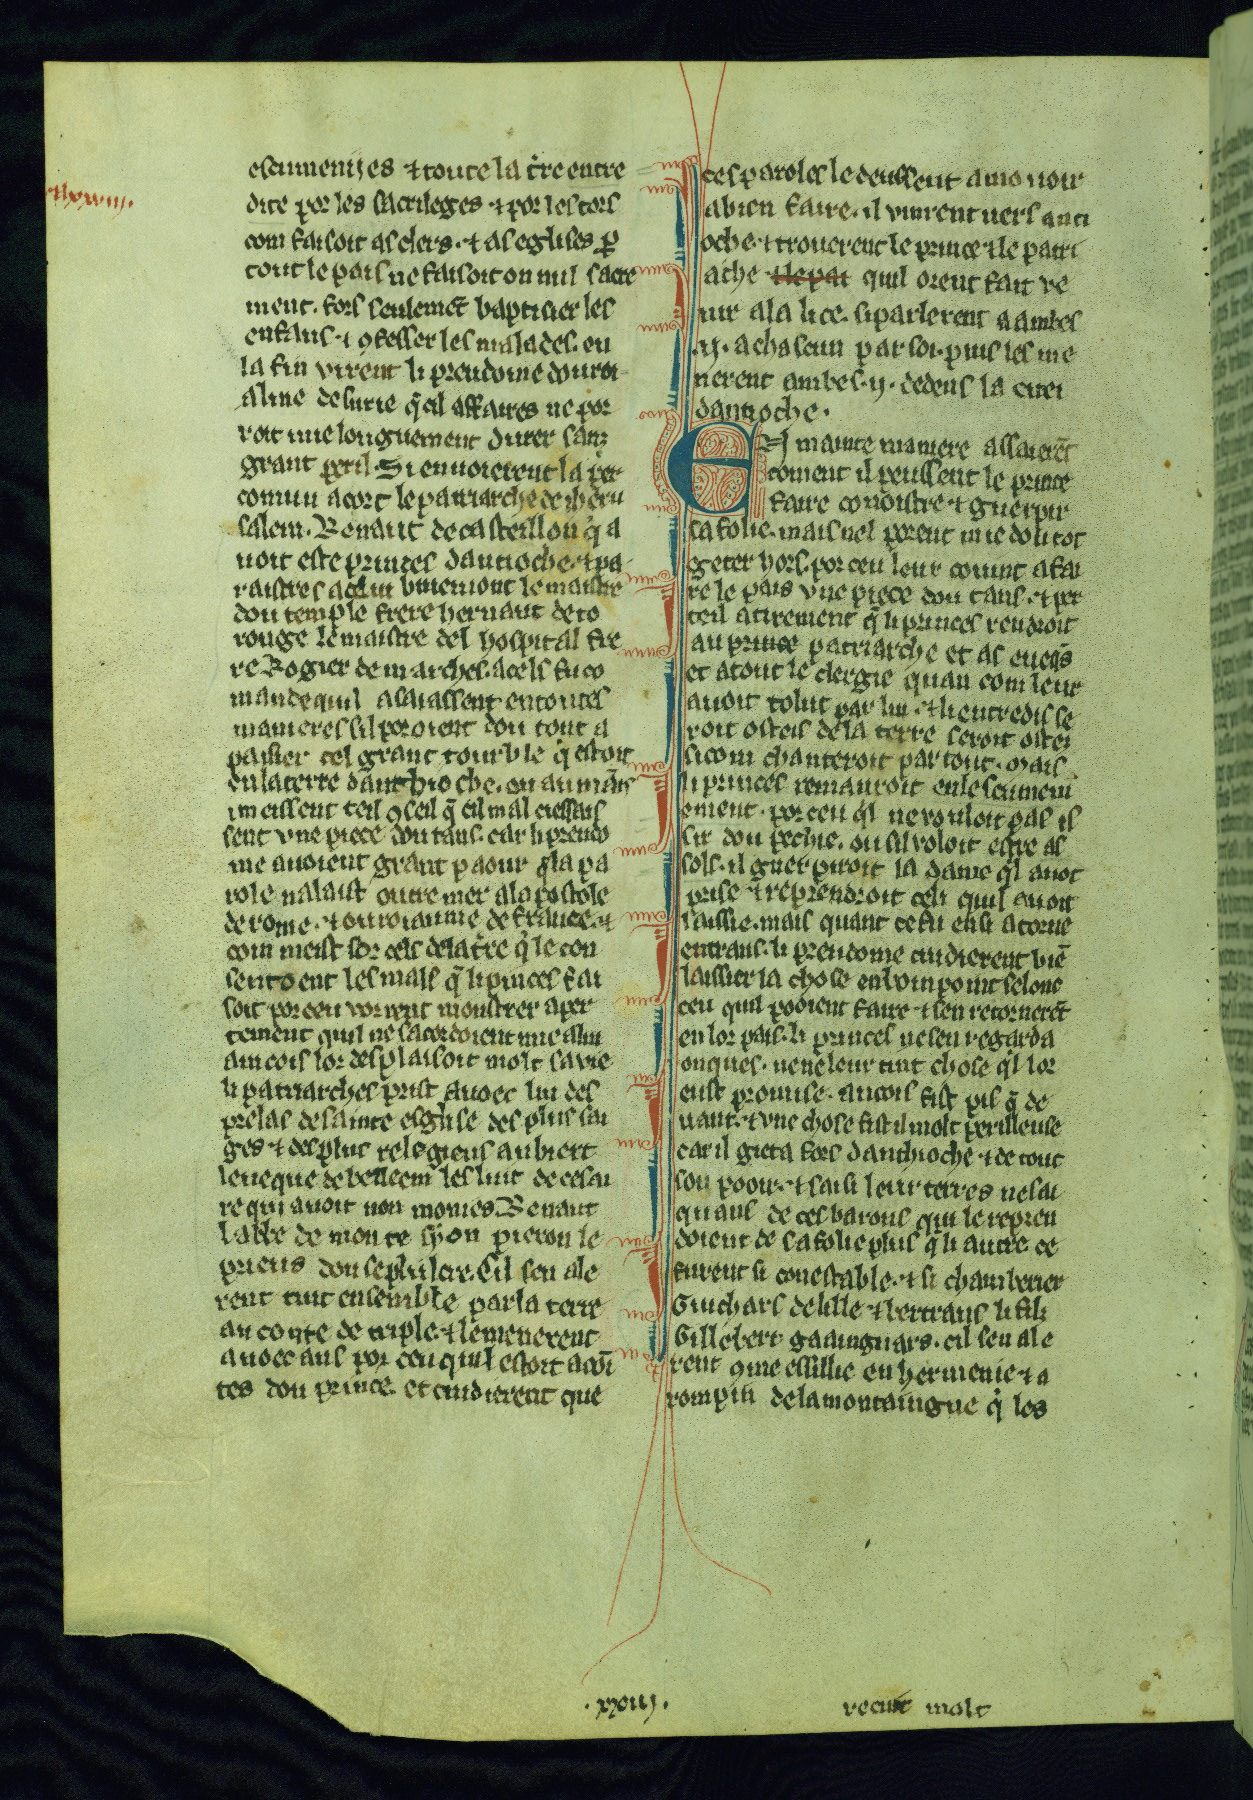 escumenijes ⁊ toute la t̃re entre
dite por les sacrileges ⁊ por les tors
com faisoit as clers. ⁊ as eglises. ꝑ
tout le païs ne faisoit on nul sacre
ment. fors seulemẽt baptisier les
enfans. ⁊ ꝯfesser les malades. en
la fin virent li preudome dou roi
alme de surie q̃ cil affaires ne por
roit mie longuement durer sanz
grant peril. Si enuoierent la par
comun acort le patriarche de iheru
salem. Renaut de casteillon q̃ a
uoit este princes dantioche. ⁊ pa
raistres celui buiemont le maistre
dou temple frere hernaut de to
rouge le maistre del hospital fre
re Rogier de marches. a cels fu co
mande quil asaiassent en toutes
manieres sil poroient dou tout a
paisier cel grant tourble q̃ estoit
en la terre danthioche. ou au mains
i meissent teil ꝯseil q̃ cil mal cressais
sent vne piece dou tans. car li preudo
me auoient grant paour q̃ la pa
role nalast outre mer a lapostole
de rome. ⁊ ou roiaume de france. ⁊
com meist sor cels de la t̃re q̃ le con
sentoient les mals q̃ li princes fai
soit por ceu vorent monstrer aper
tement quil ne sacordoient mie a lui
aincois lor desplaisoit molt sa vie
li patriarches prist auoec lui des
prelas de sainte esglise des plus sai
ges ⁊ des plus relegieus aubiert
leueque de belleem les luit de cesai
re qui auoit non monies Renaut
labbe de monte syon pieron le
prieus dou sepulcre. Cil sen ale
rent tuit ensemble par la terre
au conte de triple. ⁊ lemenerent
auoec aus por ceu quil estoit acoĩ
tes dou prince. et cuidierent que
.xxiiij.
ces paroles le deussent amouoir
a bien faire. il vinrent uers anti
oche. ⁊ trouerent le prince ⁊ le patri
ache ⁊ le pat quil orent fait ve
nir a la lice. si parlerent a ambes
.ij. a chascun par soi. puis les me
nerent ambes .ij. dedens la citei
dantioche.
En mainte maniere assaierẽt
coment il peussent le prince
faire conoistre ⁊ guerpir
sa folie. mais nel porent mie dou tot
geter hors. por ceu leur couint a fai
re le pais vne piece dou tans. ⁊ par
teil atirement q̃ li princes rendroit
au prince patriarche et as eueqs̃
et a tout le clergie quan com leur
auoit tolut par lui. ⁊ li entredis se
roit osteis de la terre seroit ostei
si com chanteroit par tout. mais
li princes remanroit en lescumeni
ement. por ceu ql̃ ne vouloit pas is
sir dou pechie. ou sil voloit estre as
sols. il guerpiroit la dame ql̃ auot
prise ⁊ reprendroit celi quil auoit
laissie. mais quant ce fu ensi atorne
entraus. li preudome cuidierent biẽ
laissier la chose en boin point selonc
ceu quil pooient faire ⁊ sen retornerẽt
en lor païs. li princes ne sen regarda
onques. ne ne leur tint chose ql̃ lor
eust promise. ancois fist pis q̃ de
uant. ⁊ vne chose fist il molt perilleuse
car il gieta fors danthioche ⁊ de tout
son pooir. ⁊ saisi leur terres ne sai
quans de ces barons qui le repren
doient de sa folie plus q̃ li autre. ce
furent si conestable. ⁊ si chamberier
Guichars de lille ⁊ bertrans li fils
Gillebert gaainguars. cil sen ale
rent ꝯme essillie en hermenie ⁊ a
rompin de la montaingne q̃ les
.xxiiij.
recuit molt